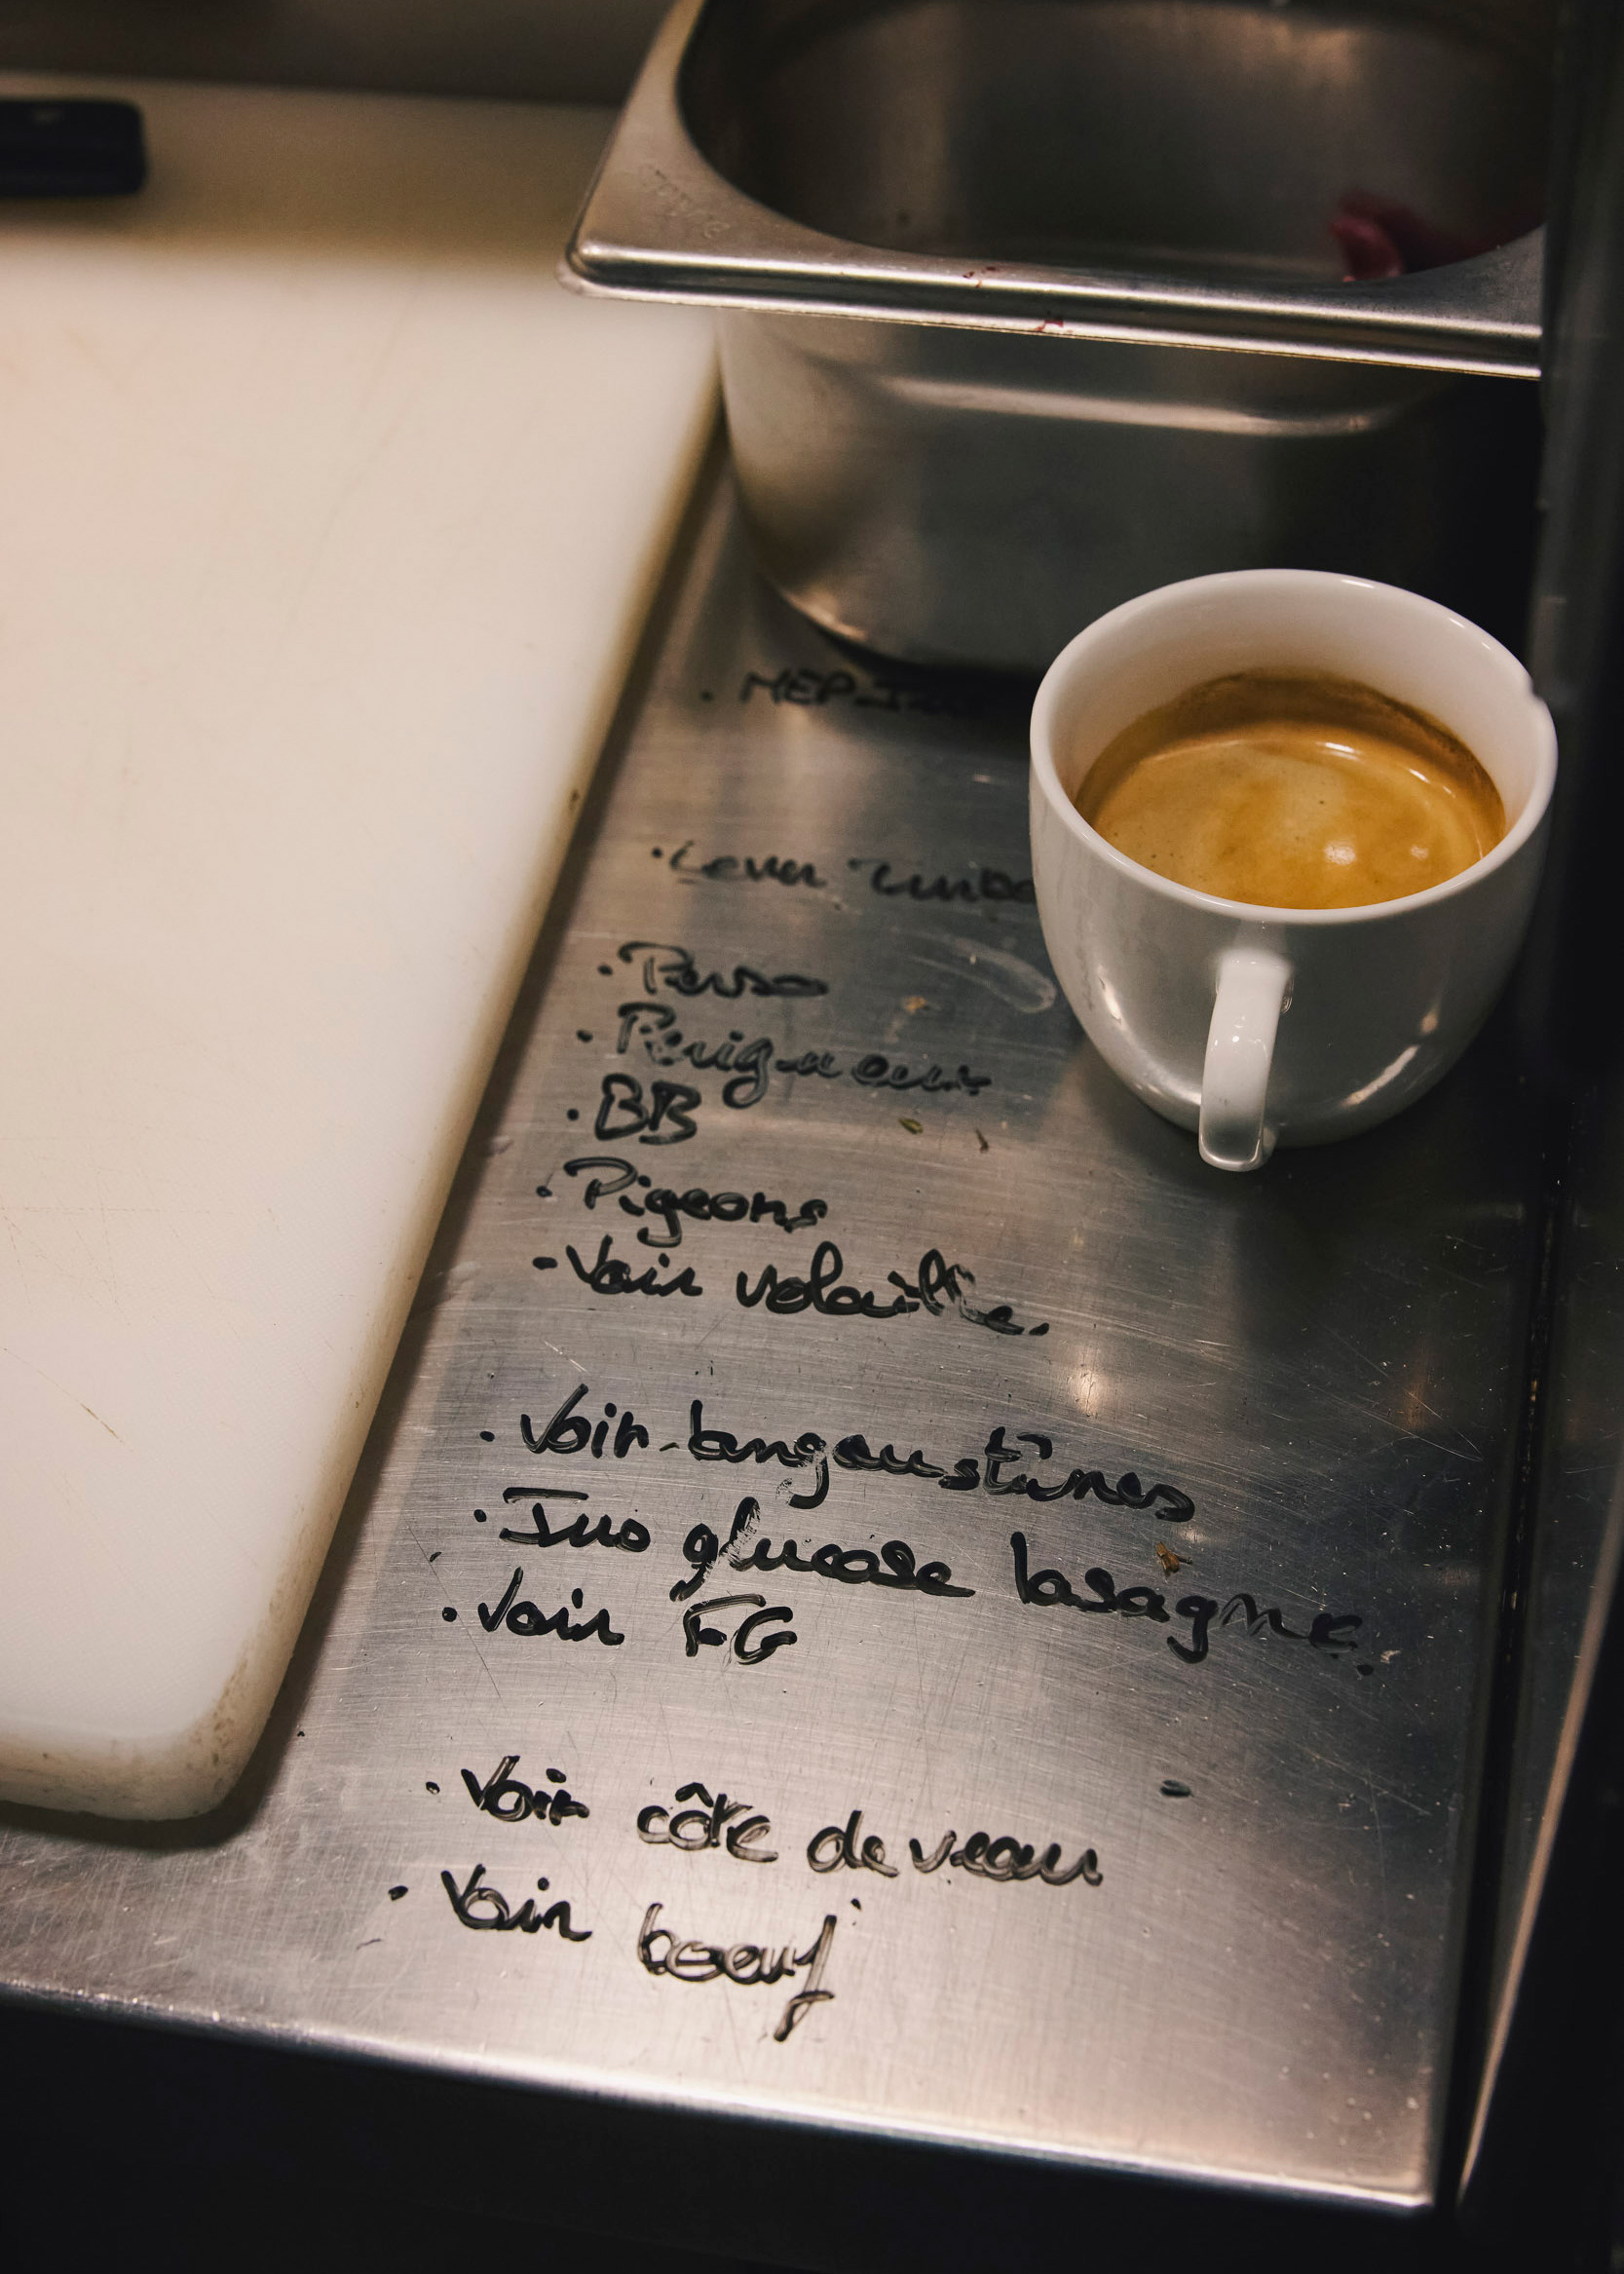 · MEP
· Lever
· Perso
· Perigneux
· BB
· Pigeons
- Voir volaille.
· Voir langoustines
· Jus glucose lasagne.
· Voir FG
· Voir côte de veau
· Voir boeuf